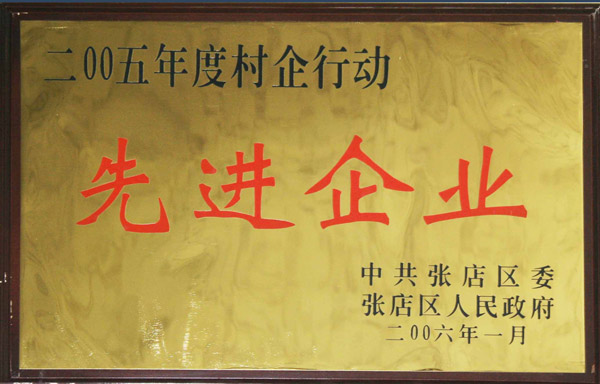 二00五年度村企行动
先进企业
中共张店区委
张店区人民政府
二00六年一月